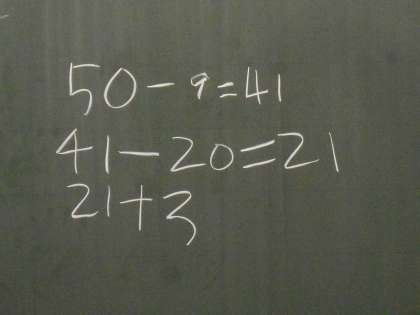 50-9=41
41-20=21
21+3